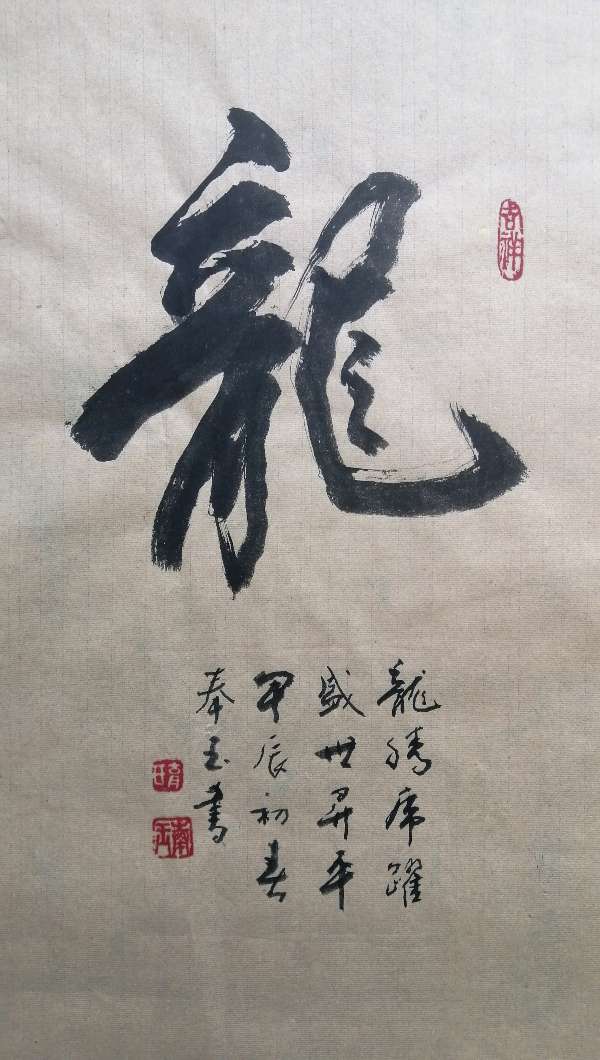 龍
龍騰虎躍
盛世昇平
甲辰初春
奉玉書